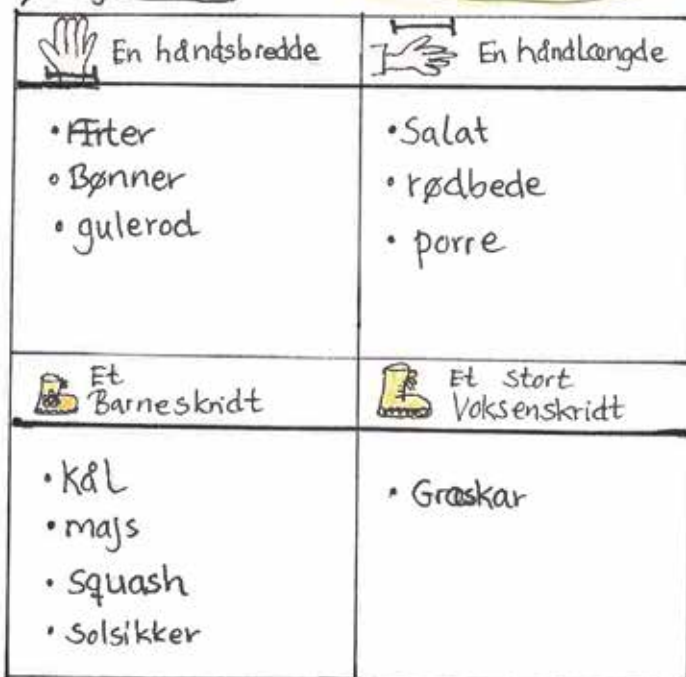 En håndsbredde
En håndlængde
• Ærter
• Bønner
• gulerod
• Salat
• rødbede
• porre
Et
Barneskridt
Et stort
Voksenskridt
• Kål
• majs
• Squash
• Solsikker
• Græskar